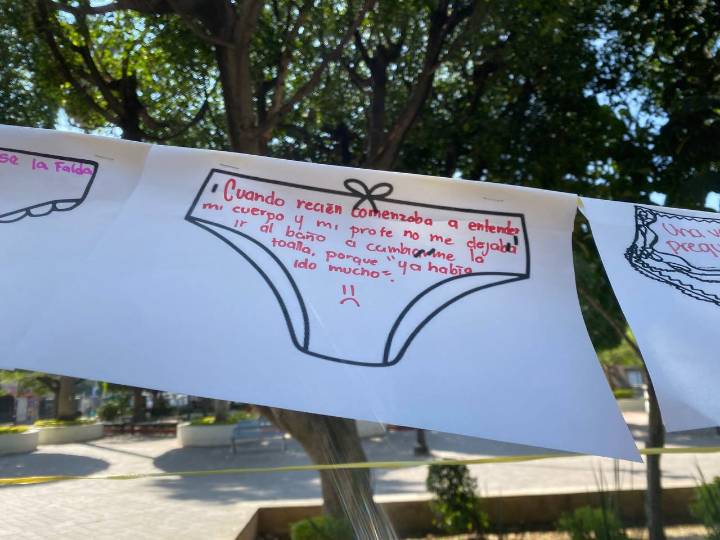 se la Falda
"Cuando recién comenzaba a entender
mi cuerpo y mi profe no me dejaba
ir al baño a cambiarme la
toalla, porque "ya había
ido mucho".
Una v
pequ